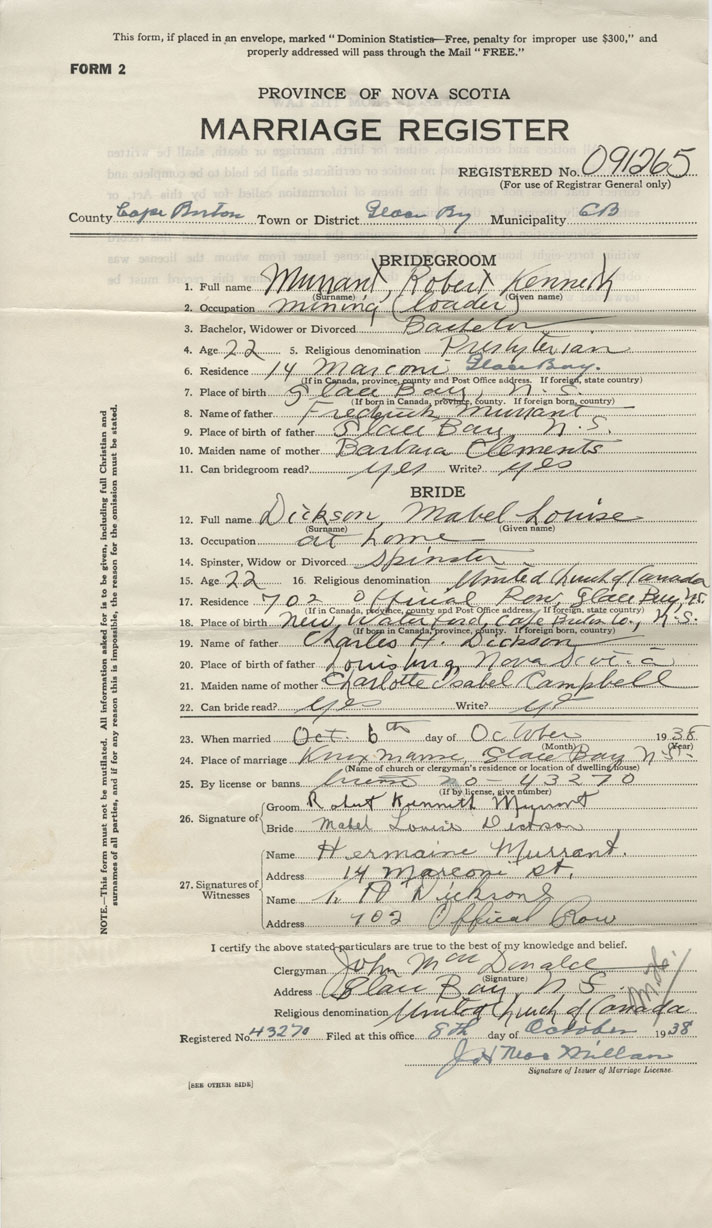 This form, if placed in an envelope, marked "Dominion Statistics—Free, penalty for improper use $300," and
properly addressed will pass through the Mail "FREE."
FORM 2
PROVINCE OF NOVA SCOTIA
MARRIAGE REGISTER
REGISTERED No. 091265
(For use of Registrar General only)
County Cape Breton Town or District Glace Bay Municipality CB
BRIDEGROOM
1. Full name Murrant, Robert Kenneth
(Surname) (Given name)
2. Occupation mining (loader)
3. Bachelor, Widower or Divorced Bachelor
4. Age 22 5. Religious denomination Presbyterian
6. Residence 14 Marconi Glace Bay.
(If in Canada, province, county and Post Office address. If foreign, state country)
7. Place of birth Glace Bay, N.S.
(If born in Canada, province, county. If foreign born, country)
8. Name of father Frederick Murrant
9. Place of birth of father Glace Bay, N.S.
10. Maiden name of mother Barbara Clements
11. Can bridegroom read? yes Write? yes
BRIDE
12. Full name Dickson, Mabel Louise
(Surname) (Given name)
13. Occupation at home
14. Spinster, Widow or Divorced Spinster
15. Age 22 16. Religious denomination United Church of Canada
17. Residence 702 Official Row, Glace Bay, N.S.
(If in Canada, province, county and Post Office address. If foreign, state country)
18. Place of birth New Waterford, Cape Breton Co., N.S.
(If born in Canada, province, county. If foreign born, country)
19. Name of father Charles H. Dickson
20. Place of birth of father Louisburg, Nova Scotia
21. Maiden name of mother Charlotte Isabel Campbell
22. Can bride read? yes Write? yes
23. When married Oct 6th day of October 1938
(Month) (Year)
24. Place of marriage Knox Manse, Glace Bay N.S.
(Name of church or clergyman's residence or location of dwelling house)
25. By license or banns no - 43270
(If by license, give number)
26. Signature of
Groom Robert Kenneth Murrant
Bride Mabel Louise Dickson
27. Signatures of Witnesses
Name Hermaine Murrant.
Address 14 Marconi St.
Name Dickson
Address 702 Offical Row
I certify the above stated particulars are true to the best of my knowledge and belief.
Clergyman John MacDonald
(Signature)
Address Glace Bay, N S
Religious denomination United Church of Canada
Registered No. 43270 Filed at this office 8th day of October 1938
J H MacMillan
Signature of Issuer of Marriage License.
[SEE OTHER SIDE]
NOTE.—This form must not be mutilated. All information asked for is to be given, including full Christian and
surnames of all parties, and if for any reason this is impossible, the reason for the omission must be stated.